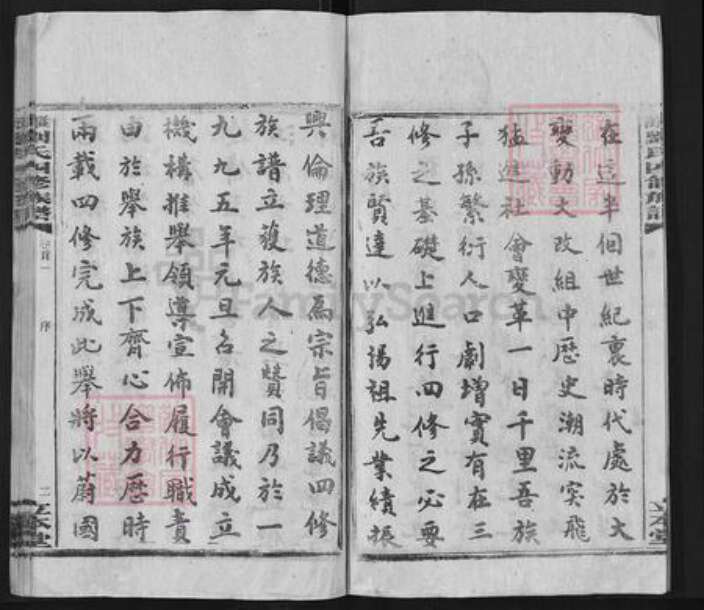 在這半個世紀裏時代處於大
變動大改組中歷史潮流突飛
猛進社會變革一日千里吾族
子孫繁衍人口劇增實有在三
修之基礎上進行四修之必要
吾族賢達以弘揚祖先業績振
興倫理道德爲宗旨倡議四修
族譜立獲族人之贊同乃於一
九九五年元旦召開會議成立
機構推舉領導宣佈履行職責
由於舉族上下齊心合力歷時
兩載四修完成此舉將以蔚國
劉氏四修族譜
序
二
立本堂
FamilySearch